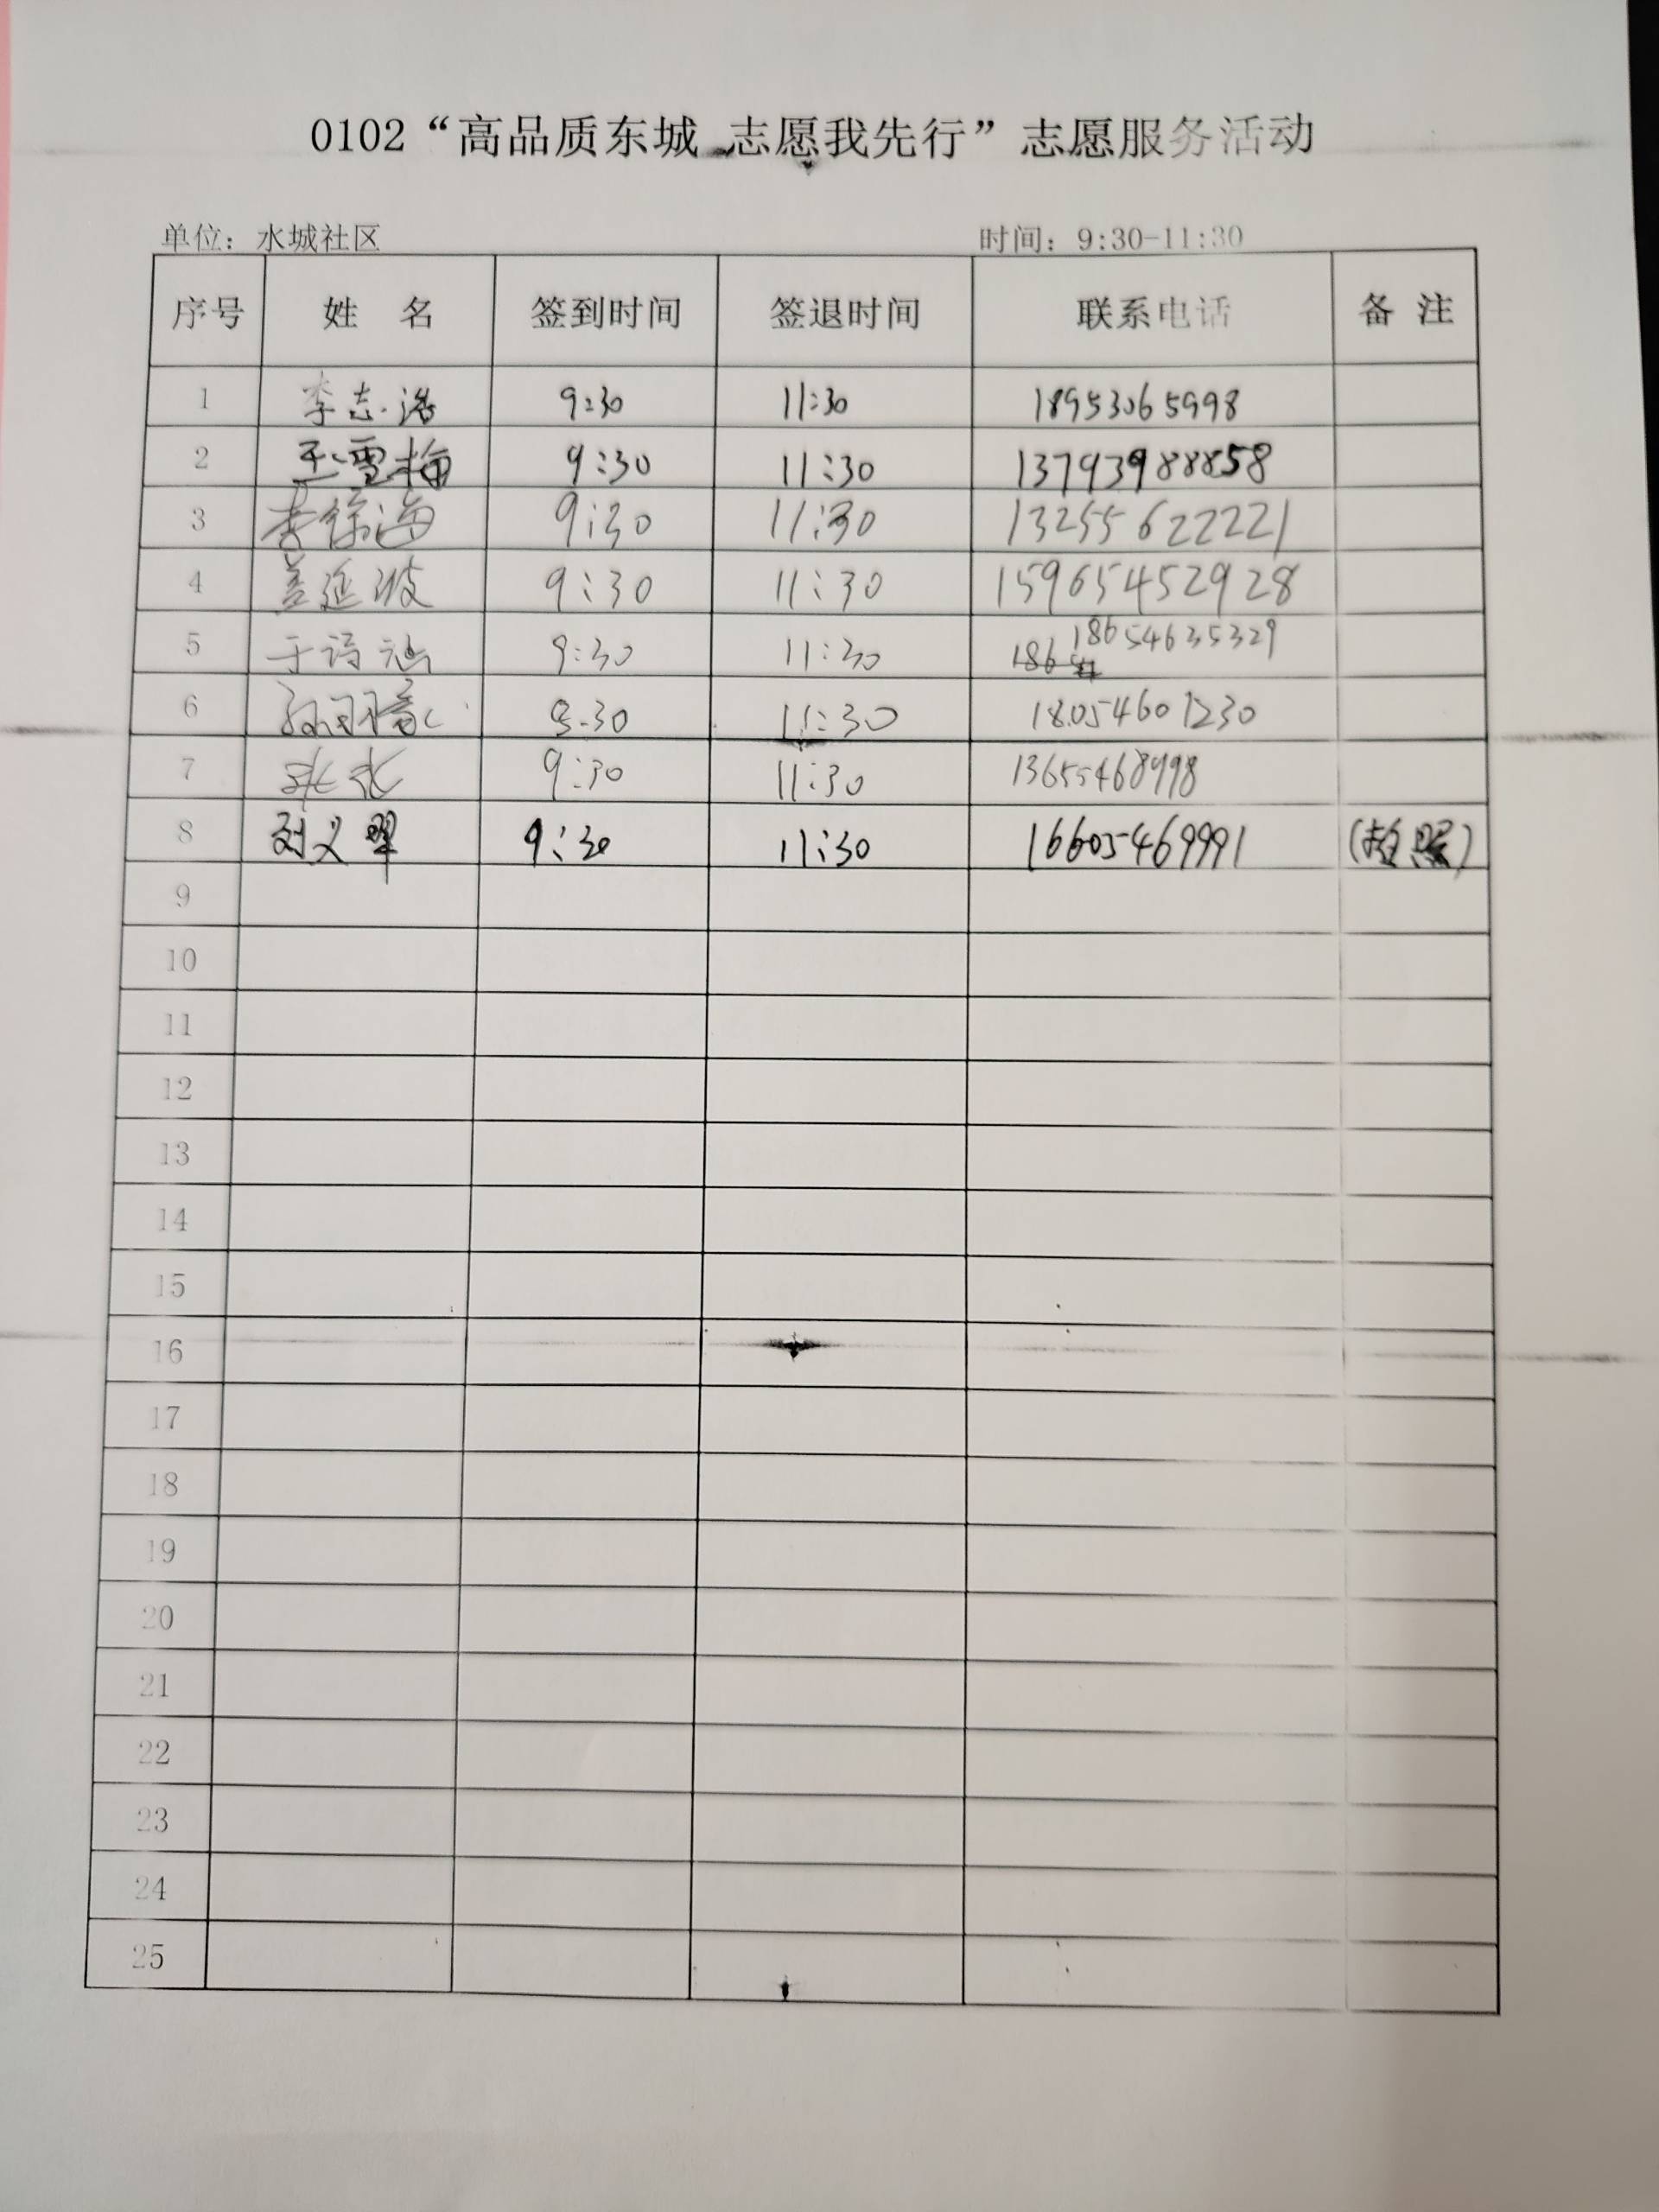 0102“高品质东城 志愿我先行”志愿服务活动
单位：水城社区 时间：9:30-11:30
序号 姓 名 签到时间 签退时间 联系电话 备 注
1 李志浩 9:30 11:30 18953065998
2 王雪梅 9:30 11:30 13793988858
3 9:30 11:30 13255622221
4 盖延波 9:30 11:30 15965452928
5 于诗涵 9:30 11:30 18654635329
6 11:30 18054601230
7 9:30 11:30 13655468998
8 9:30 11:30 16605469991 (拍照)
9
10
11
12
13
14
15
16
17
18
19
20
21
22
23
24
25